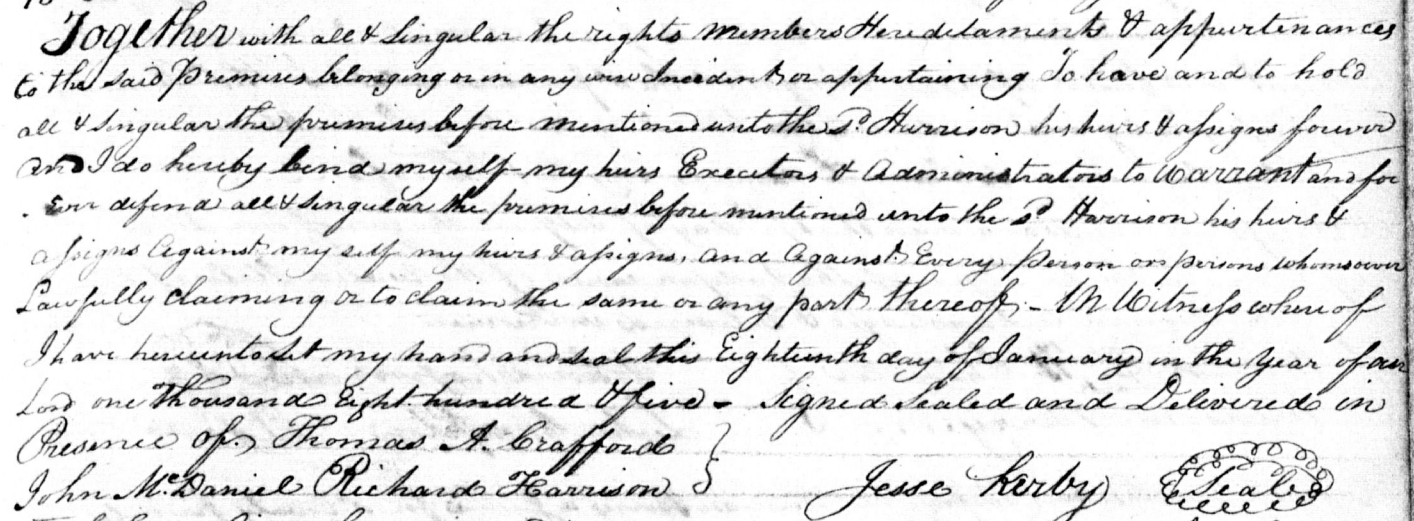 Together with all & Singular the rights Members Hereditaments & appurtenances
to the said Premises belonging or in any wise Incident or appertaining To have and to hold
all & Singular the premises before mentioned unto the Sd. Harrison his heirs & assigns forever
And I do hereby bind myself my heirs Executors & Administrators to Warrant and for
Ever defend all & Singular the premises before mentioned unto the Sd. Harrison his heirs &
assigns Against my self my heirs & assigns, and Against Every person or persons whomsoever
Lawfully Claiming or to claim the same or any part thereof, - In Witness whereof
I have hereunto Set my hand and seal this Eighteenth day of January in the Year of our
Lord one Thousand Eight hundred & five - Signed Sealed and Delivered in
Presence of, Thomas A. Crafford
John McDaniel Richard Harrison Jesse Kerby Seal